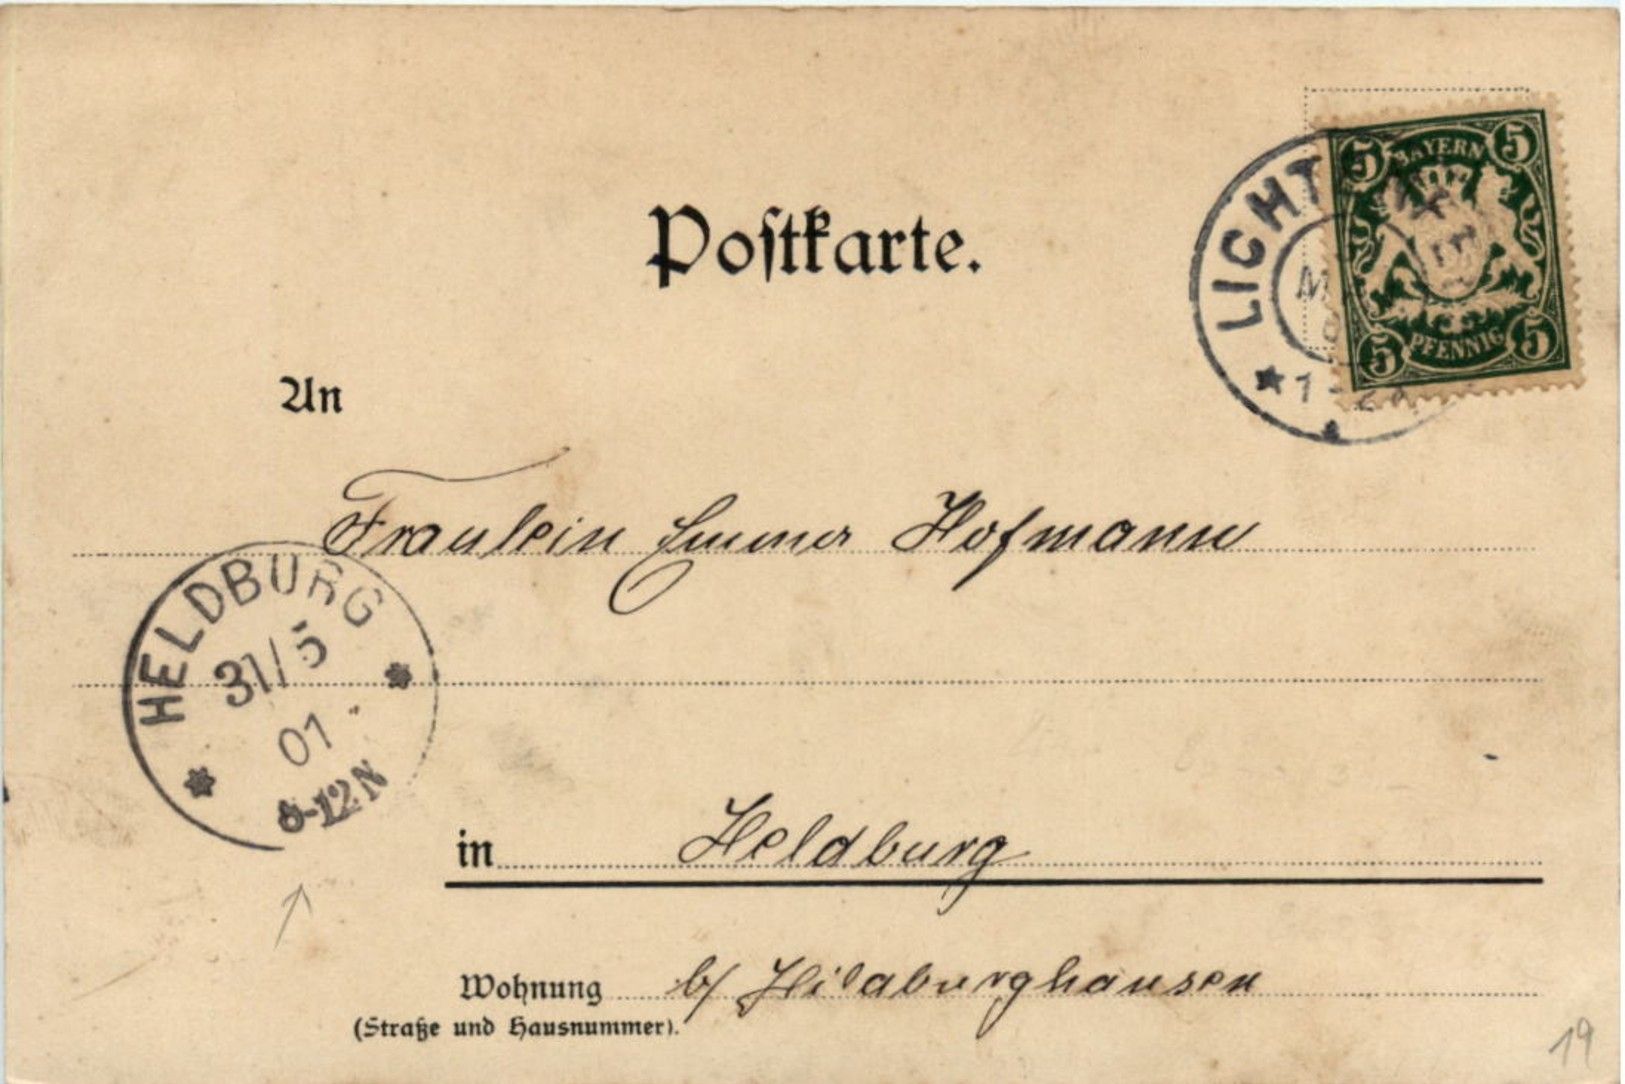 Postkarte.
BAYERN
5 5
5 5
PFENNIG
LICHT
1-2
An
Fräulein Emma Hofmann
HELDBURG
31/5
01
8-12N
in Heldburg
Wohnung b/ Hildburghausen
(Straße und Hausnummer).
19